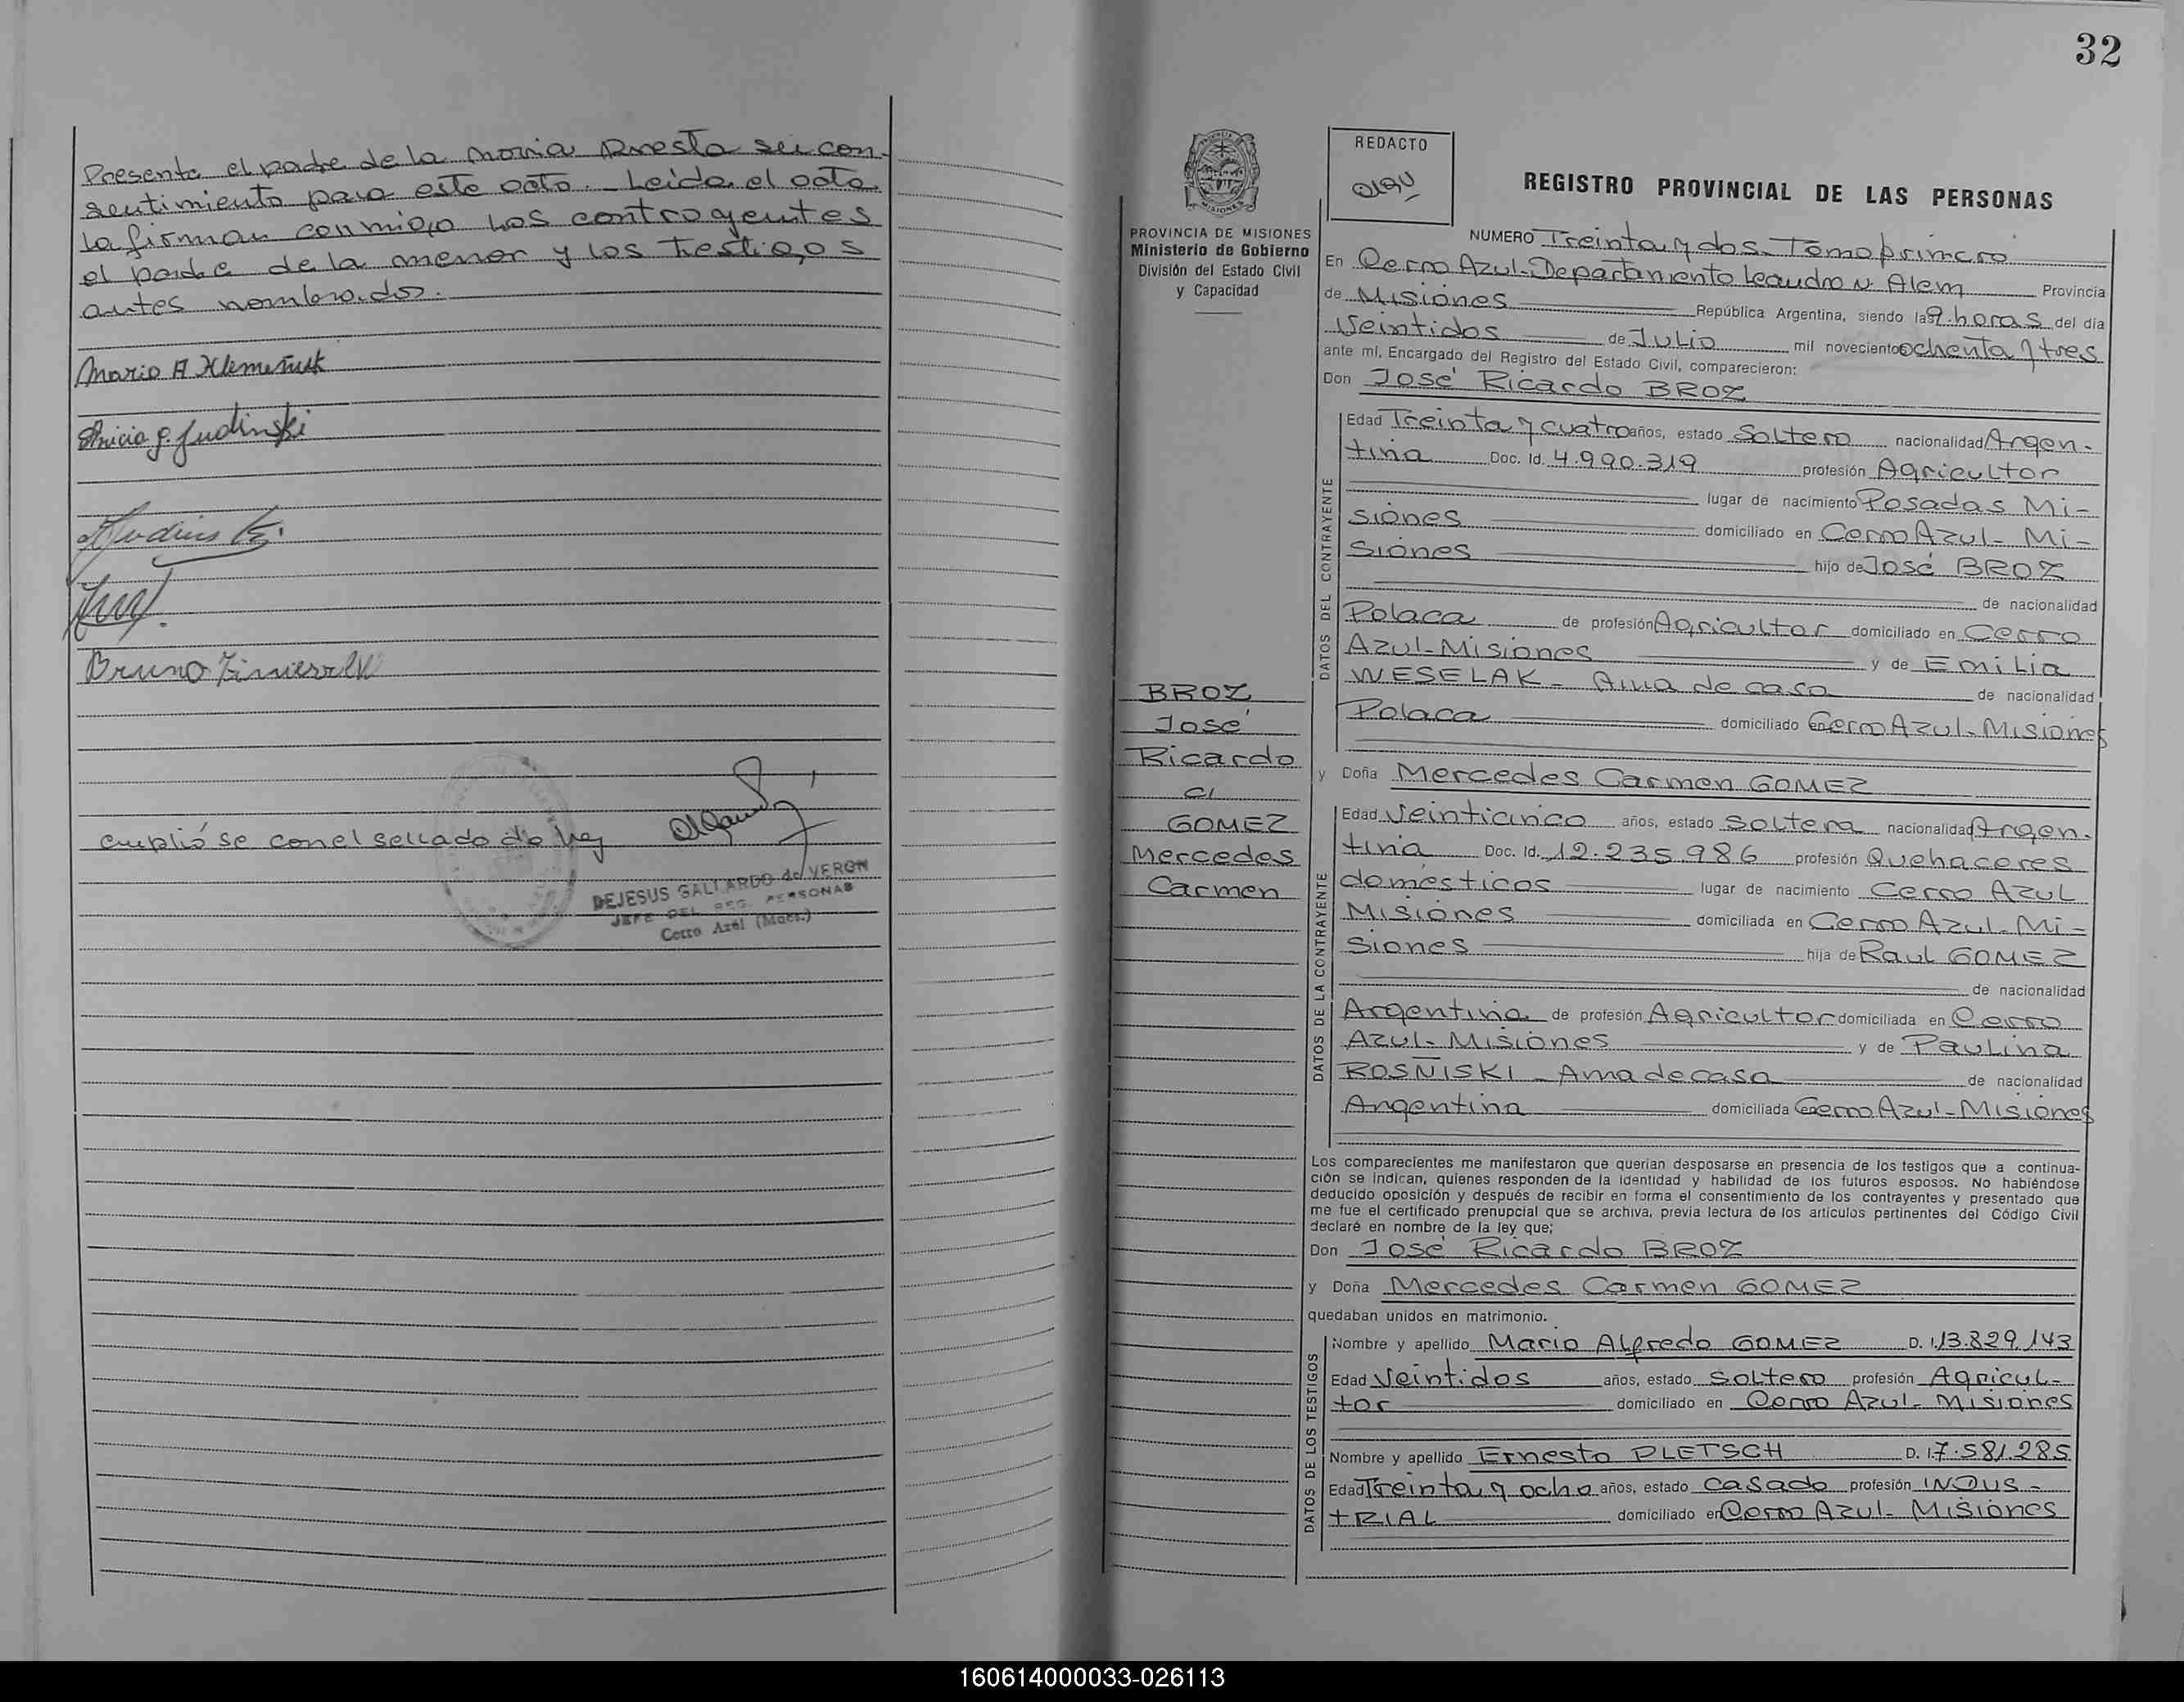 Presente el padre de la novia presta su con-
sentimiento para este acto.- Leida el acta
la firman conmigo los contrayentes
el padre de la menor y los testigos
antes nombrados.
Mario A Klemeñuk
Judinski
Bruno
Cumplióse con el sellado de ley
DEJESUS GALLARDO de VERON
JEFE DEL REG. PERSONAS
Cerro Azul (Mnes.)
32
PROVINCIA DE MISIONES
Ministerio de Gobierno
División del Estado Civil
y Capacidad
BROZ
José
Ricardo
c/
GOMEZ
Mercedes
Carmen
REDACTO
REGISTRO PROVINCIAL DE LAS PERSONAS
NUMERO Treinta y dos-Tomo primero
En Cerro Azul-Departamento Leandro N. Alem Provincia
de Misiones República Argentina, siendo las 9 horas del día
Veintidos de Julio mil novecientos ochenta y tres
ante mí, Encargado del Registro del Estado Civil, comparecieron:
Don José Ricardo BROZ
DATOS DEL CONTRAYENTE
Edad Treinta y cuatro años, estado Soltero nacionalidad Argen-
tina Doc. Id. 4.990.319 profesión Agricultor
lugar de nacimiento Posadas Mi-
siones domiciliado en Cerro Azul- Mi-
siones hijo de José BROZ
de nacionalidad
Polaca de profesión Agricultor domiciliado en Cerro
Azul-Misiones y de Emilia
WESELAK- Ama de casa de nacionalidad
Polaca domiciliado en Cerro Azul-Misiones
y Doña Mercedes Carmen GOMEZ
DATOS DE LA CONTRAYENTE
Edad Veinticinco años, estado soltera nacionalidad Argen-
tina Doc. Id. 12.235.986 profesión Quehaceres
domésticos lugar de nacimiento Cerro Azul
Misiones domiciliada en Cerro Azul-Mi-
siones hija de Raul GOMEZ
de nacionalidad
Argentina de profesión Agricultor domiciliada en Cerro
Azul- Misiones y de Paulina
ROSÑISKI - Ama de casa de nacionalidad
Argentina domiciliada en Cerro Azul-Misiones
Los comparecientes me manifestaron que querían desposarse en presencia de los testigos que a continua-
ción se indican, quienes responden de la identidad y habilidad de los futuros esposos. No habiéndose
deducido oposición y después de recibir en forma el consentimiento de los contrayentes y presentado que
me fue el certificado prenupcial que se archiva, previa lectura de los artículos pertinentes del Código Civil
declaré en nombre de la ley que;
Don José Ricardo BROZ
y Doña Mercedes Carmen GOMEZ
quedaban unidos en matrimonio.
DATOS DE LOS TESTIGOS
Nombre y apellido Mario Alfredo GOMEZ D. I. 13.829.143
Edad Veintidos años, estado soltero profesión Agricul-
tor domiciliado en Cerro Azul- Misiones
Nombre y apellido Ernesto PLETSCH D. I. 7.581.285
Edad Treinta y ocho años, estado casado profesión INDUS-
tRIAL domiciliado en Cerro Azul- Misiones
160614000033-026113